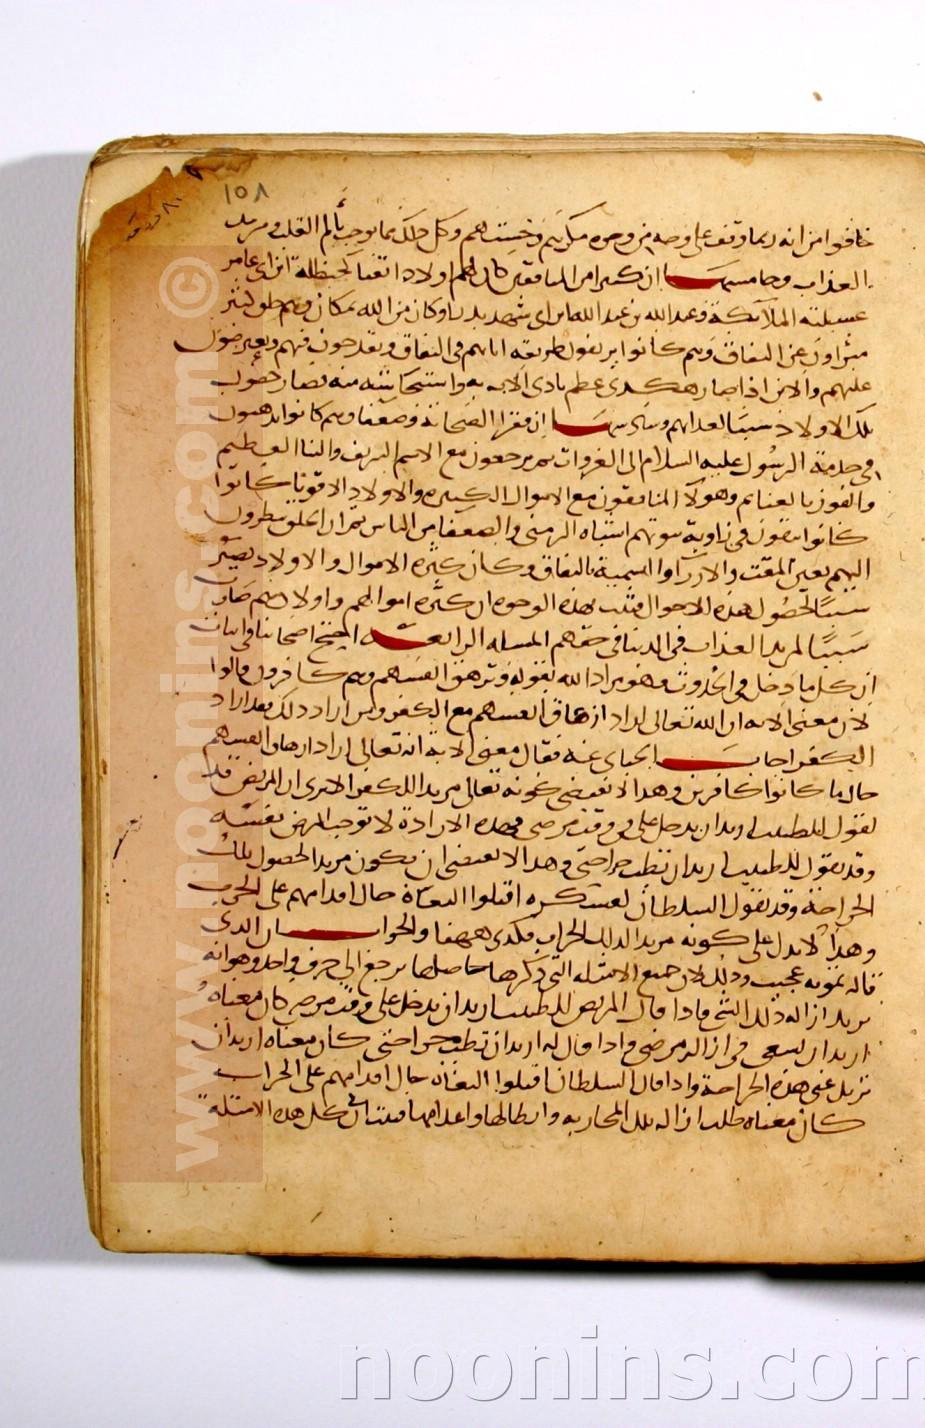 ١٥٨
خافوا من انه ربما وقف على وجه من وجوه مكرهم وخبثهم وكل ذلك مما يوجب تألم القلب ومزيد
العذاب وخامسها ان كثيرا من المنافقين كان لهم اولاد اتقيا كحنظلة ابن ابى عامر
غسلته الملائكة وعبد الله بن عبد الله بن ابى شهد بدرا وكان من الله بمكان وهم خلق كثير
مبراون عن النفاق وهم كانوا يزيفون طريقه ابايهم فى النفاق ويقدحون فيهم ويعترضون
عليهم والابن اذا صار هكذى عظم تاذى الاب به واستيحاشه منه فصار حصول
تلك الاولاد سببا لعذابهم وسادسها ان فقرا الصحابة وضعفاوهم كانوا يذهبون
فى خدمة الرسول عليه السلام الى الغزوات ثم يرجعون مع الاسم الشريف والثنا العظيم
والفوز بالغنايم وهولا المنافقون مع الاموال الكثيره والاولاد الاقويا كانوا
كانوا يبقون فى زاوية بيوتهم اشباه الزمنى والضعفا من الناس ثم ان الخلق ينظرون
اليهم بعين المقت والازراء والسمية بالنفاق وكان كثرة الاموال والاولاد يصير
سببا لحصول هذه الاحوال فثبت بهذه الوجوه ان كثره اموالهم واولادهم صارت
سببا لمزيد العذاب فى الدنيا فى حقهم المسله الرابعه احتج اصحابنا فى اثبات
ان كل ما دخل فى الوجود فهو مراد الله بقوله وتزهق انفسهم وهم كافرون قالوا
لان معنى الايه ان الله تعالى اراد ازهاق انفسهم مع الكفر ومن اراد ذلك فقد اراد
الكفر اجاب الجباى عنه فقال معنى الاية انه تعالى اراد ازهاق انفسهم
حال ما كانوا كافرين وهذا لا يقتضى كونه تعالى مريدا للكفر الا ترى ان المريض قد
يقول للطبيب اريد ان تدخل على فى وقت مرضى فهذه الارادة لا توجب المرض بنفسه
وقد يقول للطبيب اريد ان تطيب جراحتى وهذا لا يقتضى ان يكون مريدا لحصول تلك
الجراحة وقد يقول السلطان لعسكره اقتلوا البغاة حال اقدامهم على الحرب
وهذا لا يدل على كونه مريدا لذلك الحراب فكذى ههنا والجواب ان الذى
قاله تمويه عجيب وذلك لان جميع الامثله التى ذكرها حاصلها يرجع الى حرف واحد وهو انه
يريد ازاله ذلك الشى فاذا قال المريض للطبيب اريد ان تدخل على فى وقت مرضى كان معناه
اريد ان تسعى فى ازالة مرضى واذا قال له اريد ان تطيب جراحتى كان معناه اريد ان
تزيل عنى هذه الجراحة واذا قال السلطان اقتلوا البغاة حال اقدامهم على الحراب
كان معناه طلب ازاله تلك المحاربه وابطالها واعدامها فثبت ان كل هذه الامثله
www.noonins.com ©
noonins.com